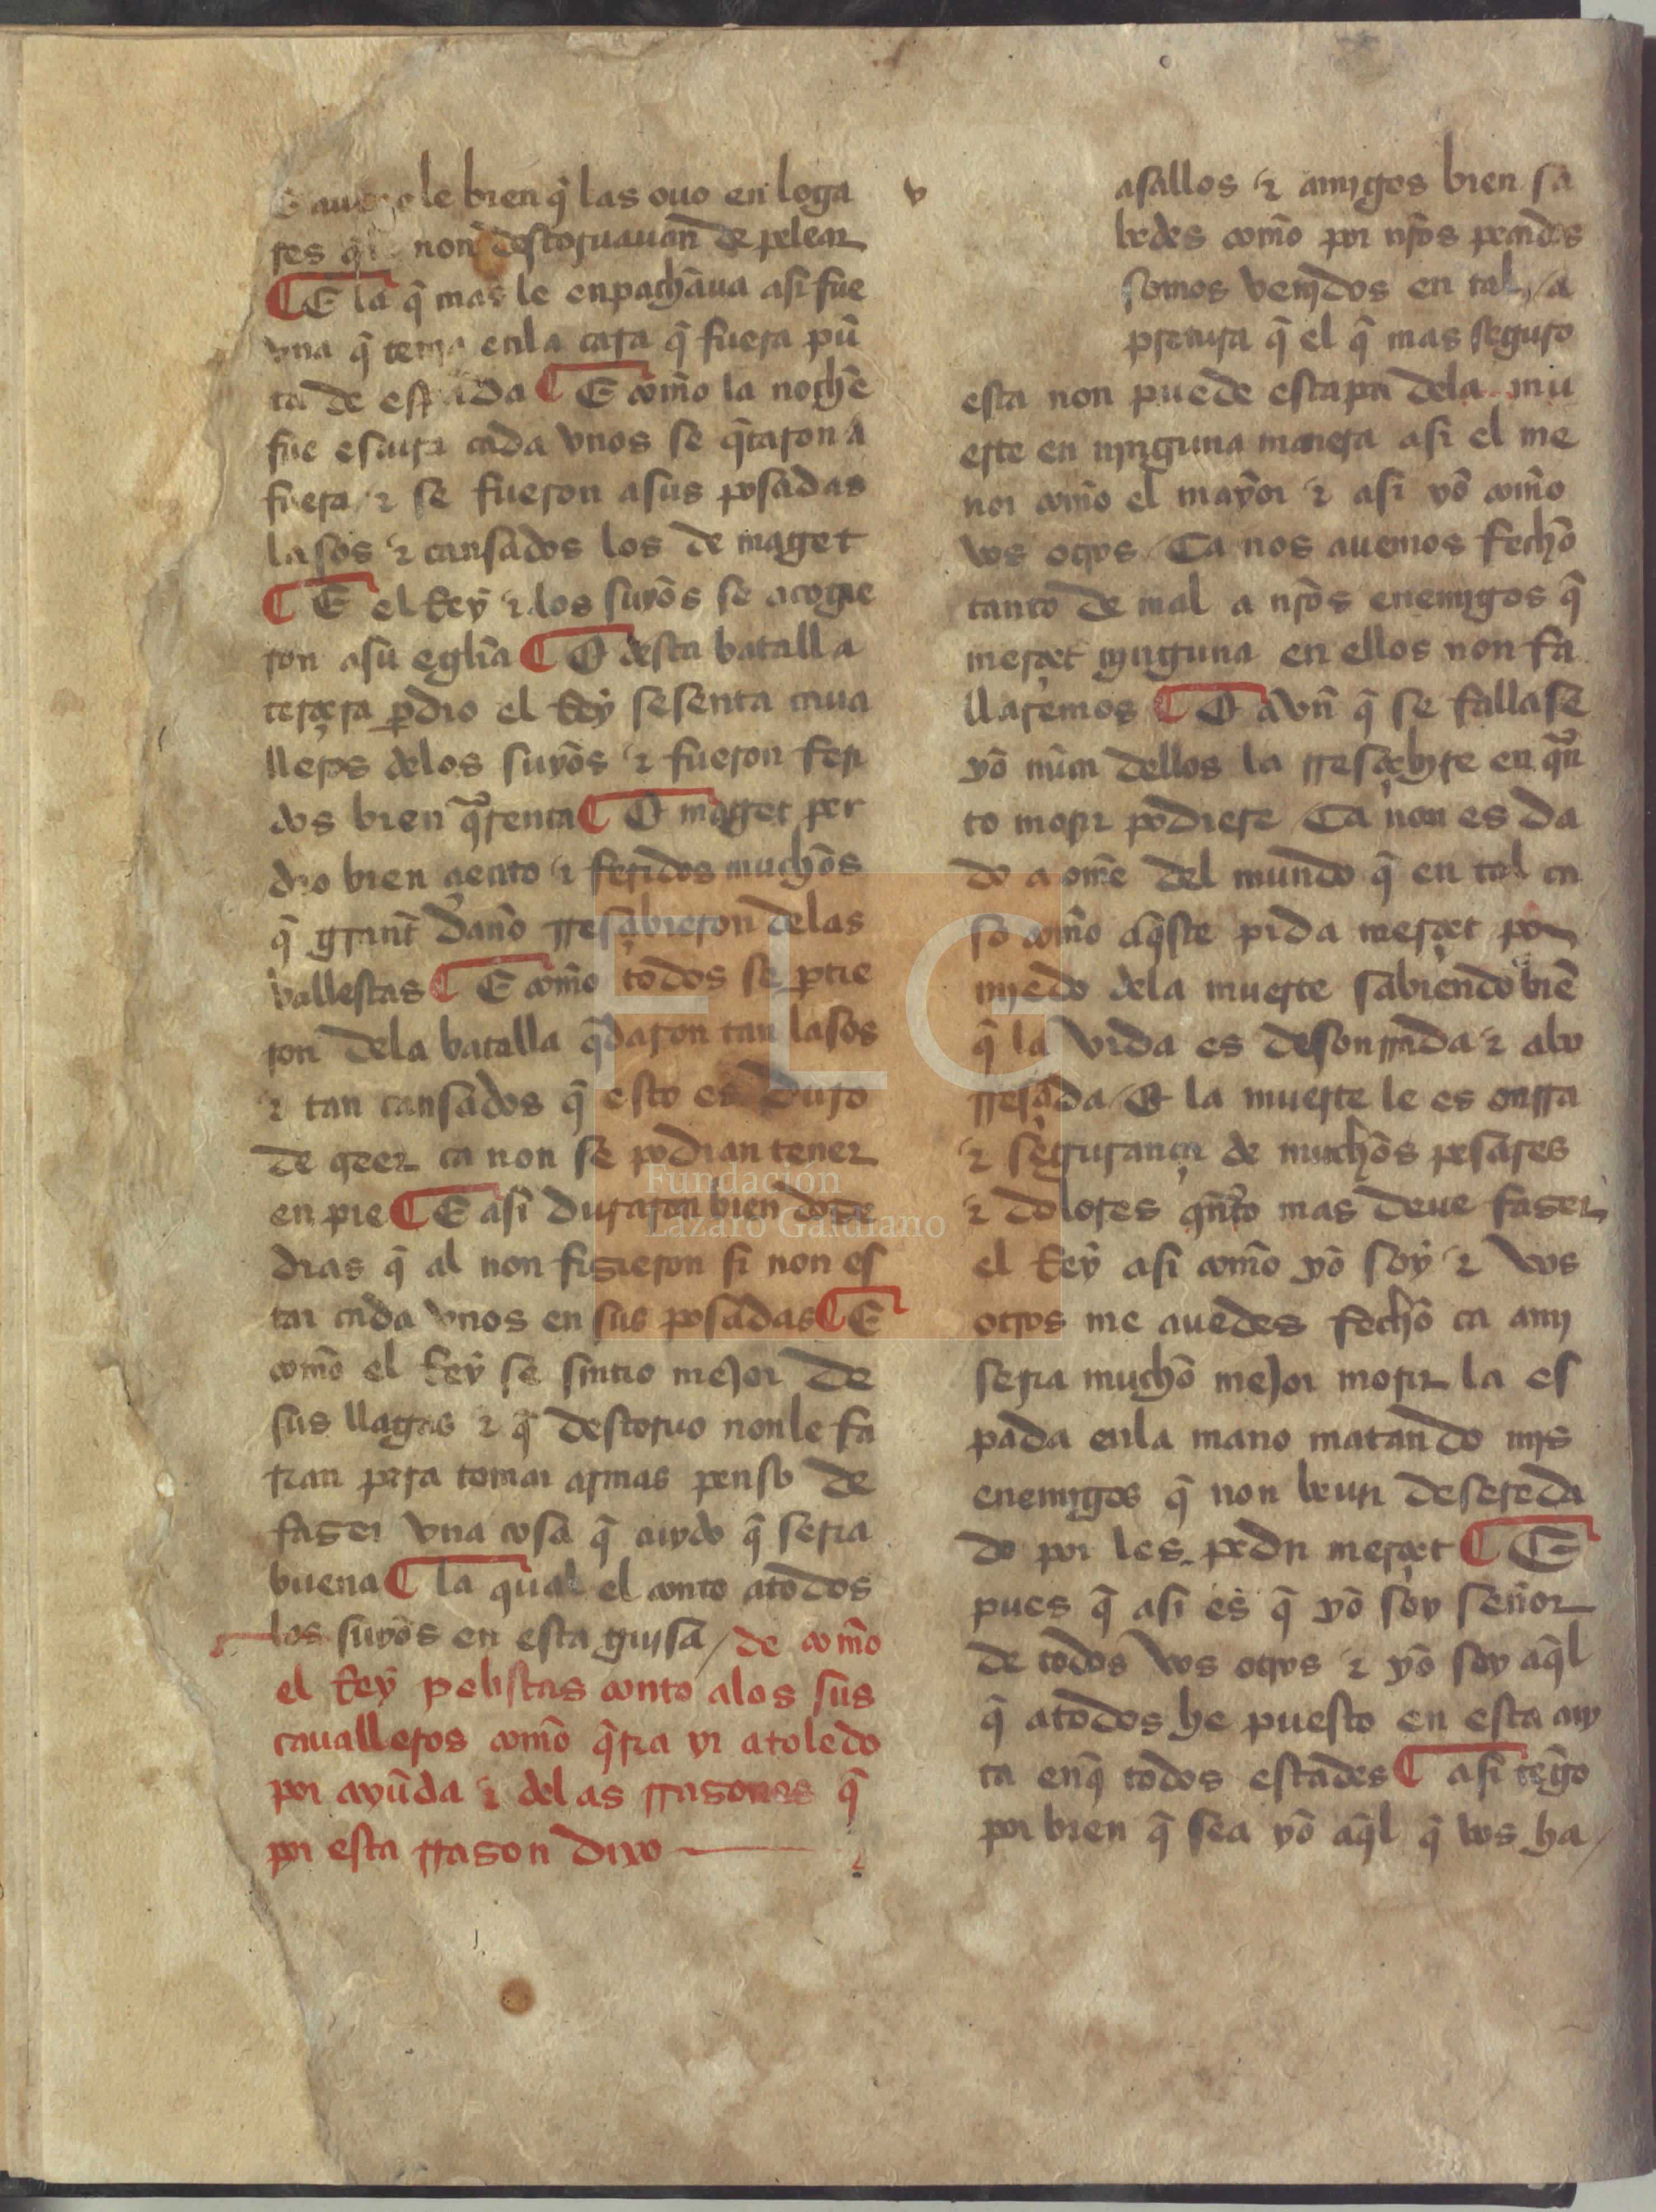 E auinole bien q̃ las ouo en loga
res q̃ le non destoruauan de pelear
¶ E la q̃ mas le enpachaua asi fue
vna q̃ tenja enla cara q̃ fuera pũ
ta de espada ¶ E com̃o la noche
fue escura cada vnos se q̃taron a
fuera / ⁊ se fueron a sus posadas
lasos ⁊ cansados los de maget
¶ E el Rey ⁊ los suyos se acogie
ron asu eglia ¶ E desta batalla
terçera ꝑdio el Rey sesenta caua
lleros delos suyos ⁊ fueron feri
dos bien q̃renta ¶ E maget per
dio bien çiento ⁊ feridos muchos
q̃ grant daño rresçibieron delas
vallestas ¶ E com̃o todos se ꝑtie
ron dela batalla q̃daron tan lasos
⁊ tan cansados q̃ esto es duro
de creer ca non se podian tener
en pie ¶ E asi duraron bien doze
dias q̃ al non fizieron si non es
tar cada vnos en sus posadas ¶ E
com̃o el Rey se sintio mejor de
sus llagas ⁊ q̃ destoruo non le fa
rian para tomar armas penso de
fazer vna cosa q̃ cuydo q̃ seria
buena ¶ la qual el conto atodos
los suyos en esta guisa / de com̃o
el Rey pelistas conto alos sus
caualleros com̃o q̃ria yr a toledo
por ayuda ⁊ delas rrazones q̃
por esta rrazon dixo
v
asallos ⁊ amjgos bien sa
bedes com̃o por nr̃os pecados
somos venjdos en tal / a
pretura q̃ el q̃ mas seguro
esta non puede escapar dela mu
erte en njnguna manera asi el me
nor com̃o el mayor ⁊ asi yo com̃o
vos otros / Ca nos auemos fecho
tanto de mal a nr̃os enemjgos q̃
merçet njnguna en ellos non fa
llaremos ¶ E avn̄ q̃ se fallase
yo nũca dellos la rresçebire en q̃n
to morir podiere / Ca non es da
do a om̃e del mundo q̃ en tal ca
so com̃o aq̃ste pida merçet por
mjedo dela muerte sabiendo biẽ
q̃ la vida es desonrrada ⁊ abo
rresçida / E la muerte le es onrra
⁊ segurança de muchos pesares
⁊ dolores q̃nto mas deue fazer
el Rey asi com̃o yo soy ⁊ vos
otros me auedes fecho ca amj
seria mucho mejor morir la es
pada enla mano matando mjs
enemjgos q̃ non beuir desereda
do por les pedir merçet ¶ E
pues q̃ asi es q̃ yo soy señor
de todos vos otros ⁊ yo soy aq̃l
q̃ atodos he puesto en esta cuy
ta enq̃ todos estades ¶ asi tẽgo
por bien q̃ sea yo aq̃l q̃ vos ha /
FLG
Fundación
Lázaro Galdiano